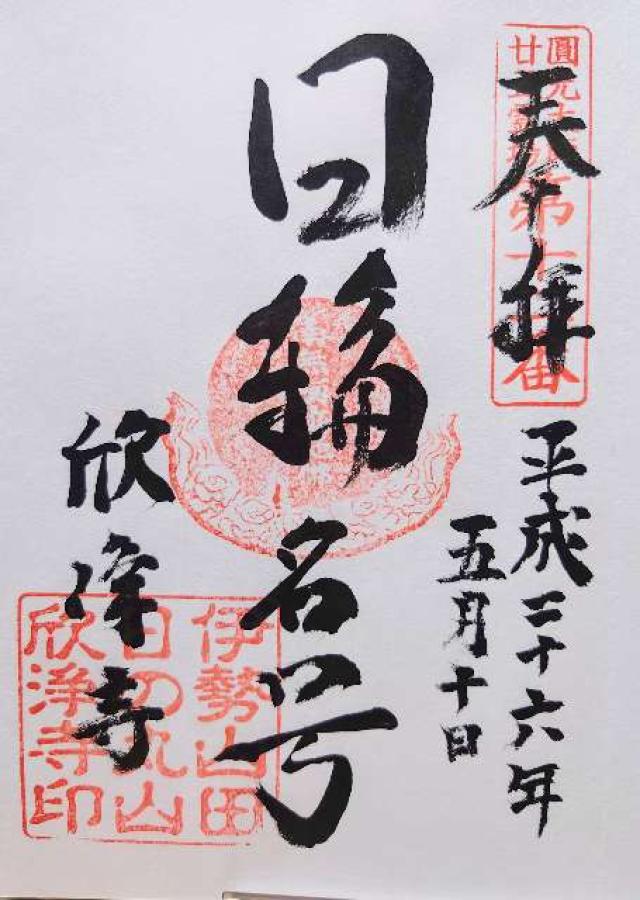 奉拝
圓光大師
廿五霊場
第十二番
平成二十六年
五月十日
日輪名号
欣浄寺
伊勢山田
日の丸山
欣浄寺印